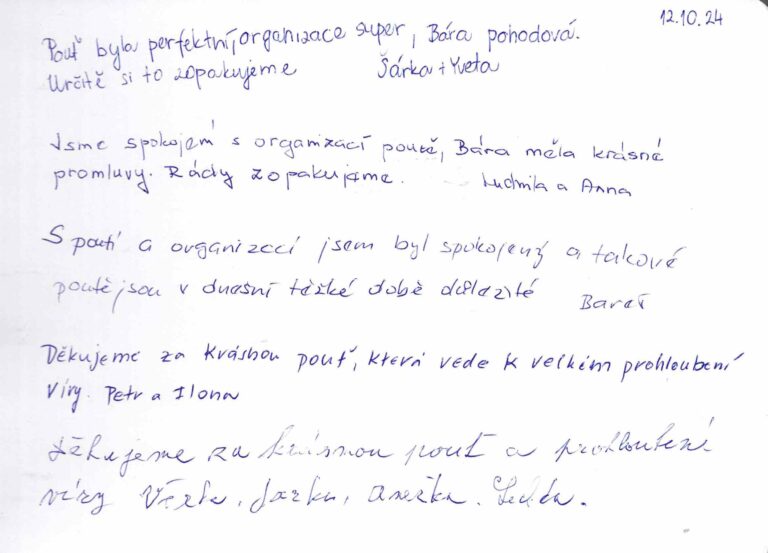 12.10.24
Pouť byla perfektní, organizace super, Bára pohodová.
Určitě si to zopakujeme Šárka + Yveta
Jsme spokojení s organizací poutě, Bára měla krásné
promluvy. Rády zopakujeme. Ludmila a Anna
S poutí a organizací jsem byl spokojený a takové
poutě jsou v dnešní těžké době důležité
Děkujeme za krásnou pouť, která vede k velkém prohloubení
víry. Petr a Ilona
Děkujeme za krásnou pouť a prohloubení
víry Anežka.